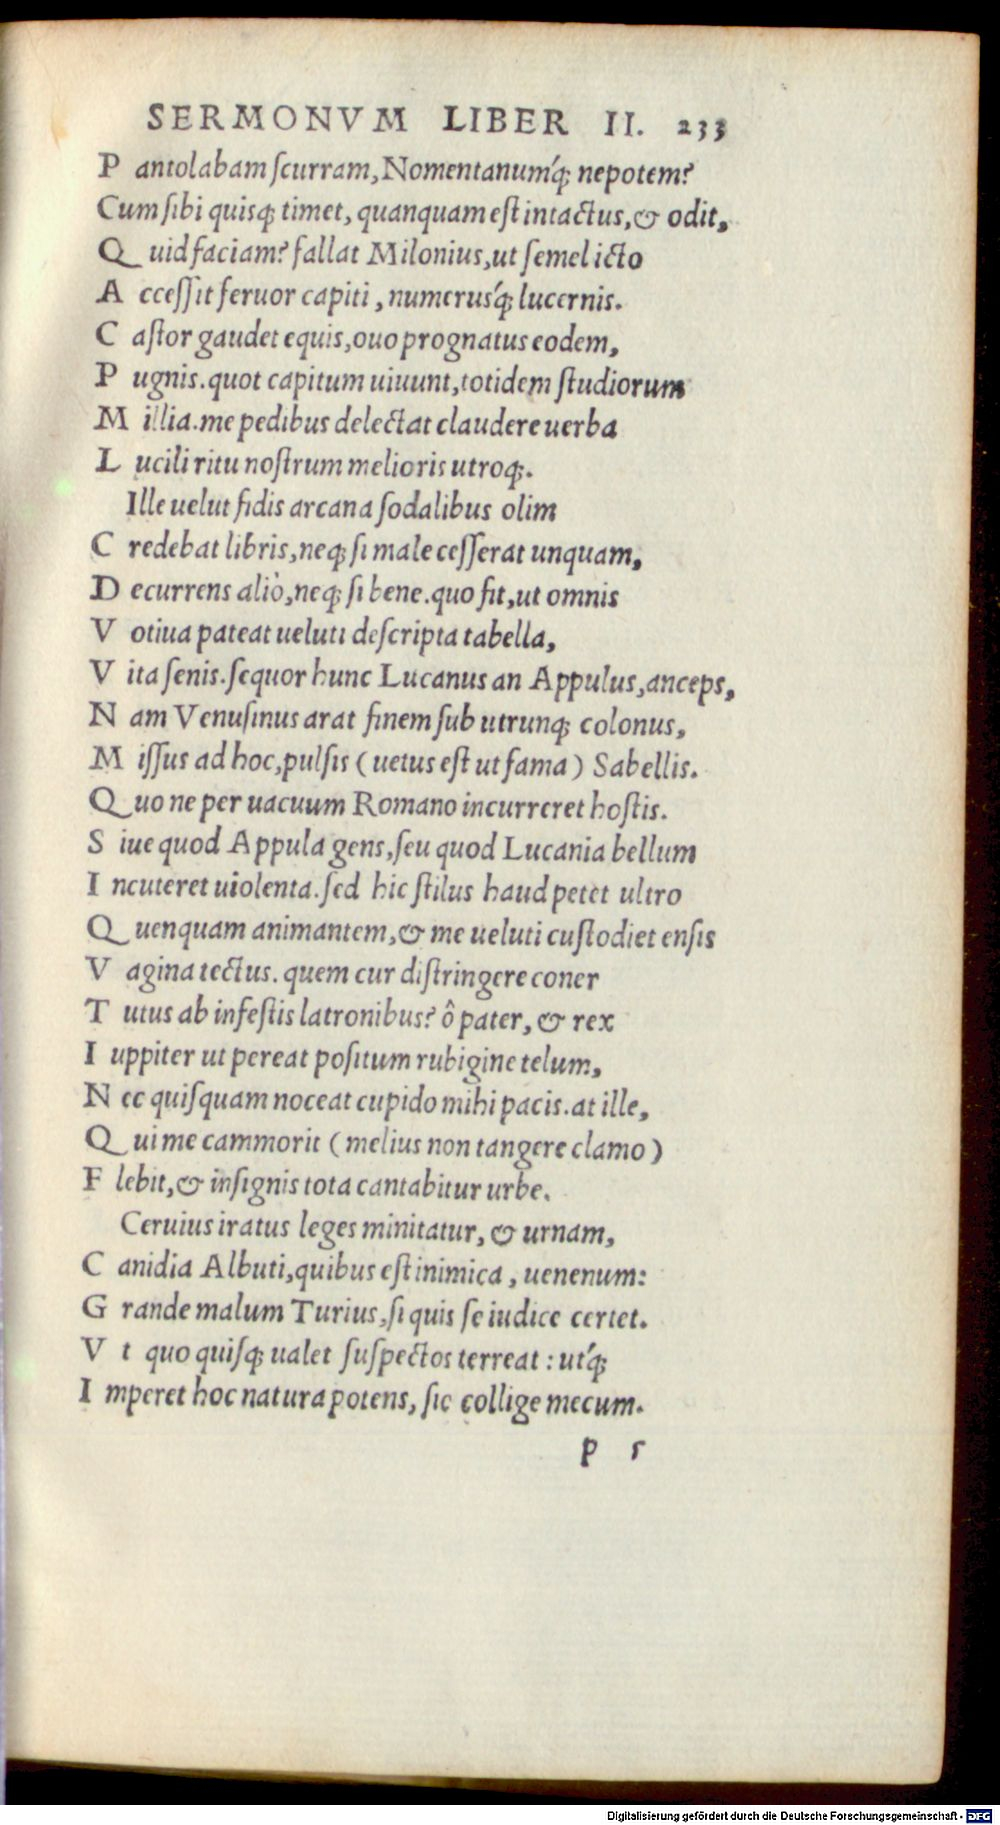 SERMONVM LIBER II. 233
P antolabam ſcurram, Nomentanum´q; nepotem?
Cum ſibi quisq; timet, quanquam eſt intactus, & odit,
Q uid faciam? ſallat Milonius, ut ſemel icto
A cceſſit feruor capiti, numerus´q; lucernis.
C aſtor gaudet equis, ouo prognatus eodem,
P ugnis. quot capitum uiuunt, totidem ſtudiorum
M illia. me pedibus delectat claudere uerba
L ucili ritu noſtrum melioris utroq;.
Ille uelut fidis arcana ſodalibus olim
C redebat libris, neq; ſi male ceſſerat unquam,
D ecurrens aliò, neq; ſi bene. quo fit, ut omnis
V otiua pateat ueluti deſcripta tabella,
V ita ſenis. ſequor hunc Lucanus an Appulus, anceps,
N am Venuſinus arat finem ſub utrunq; colonus,
M iſſus ad hoc, pulſis (uetus eſt ut fama) Sabellis.
Q uo ne per uacuum Romano incurreret hoſtis.
S iue quod Appula gens, ſeu quod Lucania bellum
I ncuteret uiolenta. ſed hic ſtilus haud petet ultro
Q uenquam animantem, & me ueluti cuſtodiet enſis
V agina tectus. quem cur diſtringere coner
T utus ab infeſtis latronibus? ô pater, & rex
I uppiter ut pereat poſitum rubigine telum,
N ec quiſquam noceat cupido mihi pacis. at ille,
Q ui me cammorit (melius non tangere clamo)
F lebit, & inſignis tota cantabitur urbe.
Ceruius iratus leges minitatur, & urnam,
C anidia Albuti, quibus eſt inimica, uenenum:
G rande malum Turius, ſi quis ſe iudice certet.
V t quo quiſq; ualet ſuſpectos terreat: ut´q;
I mperet hoc natura potens, ſic collige mecum.
p 5
Digitalisierung gefördert durch die Deutsche Forschungsgemeinschaft - DFG